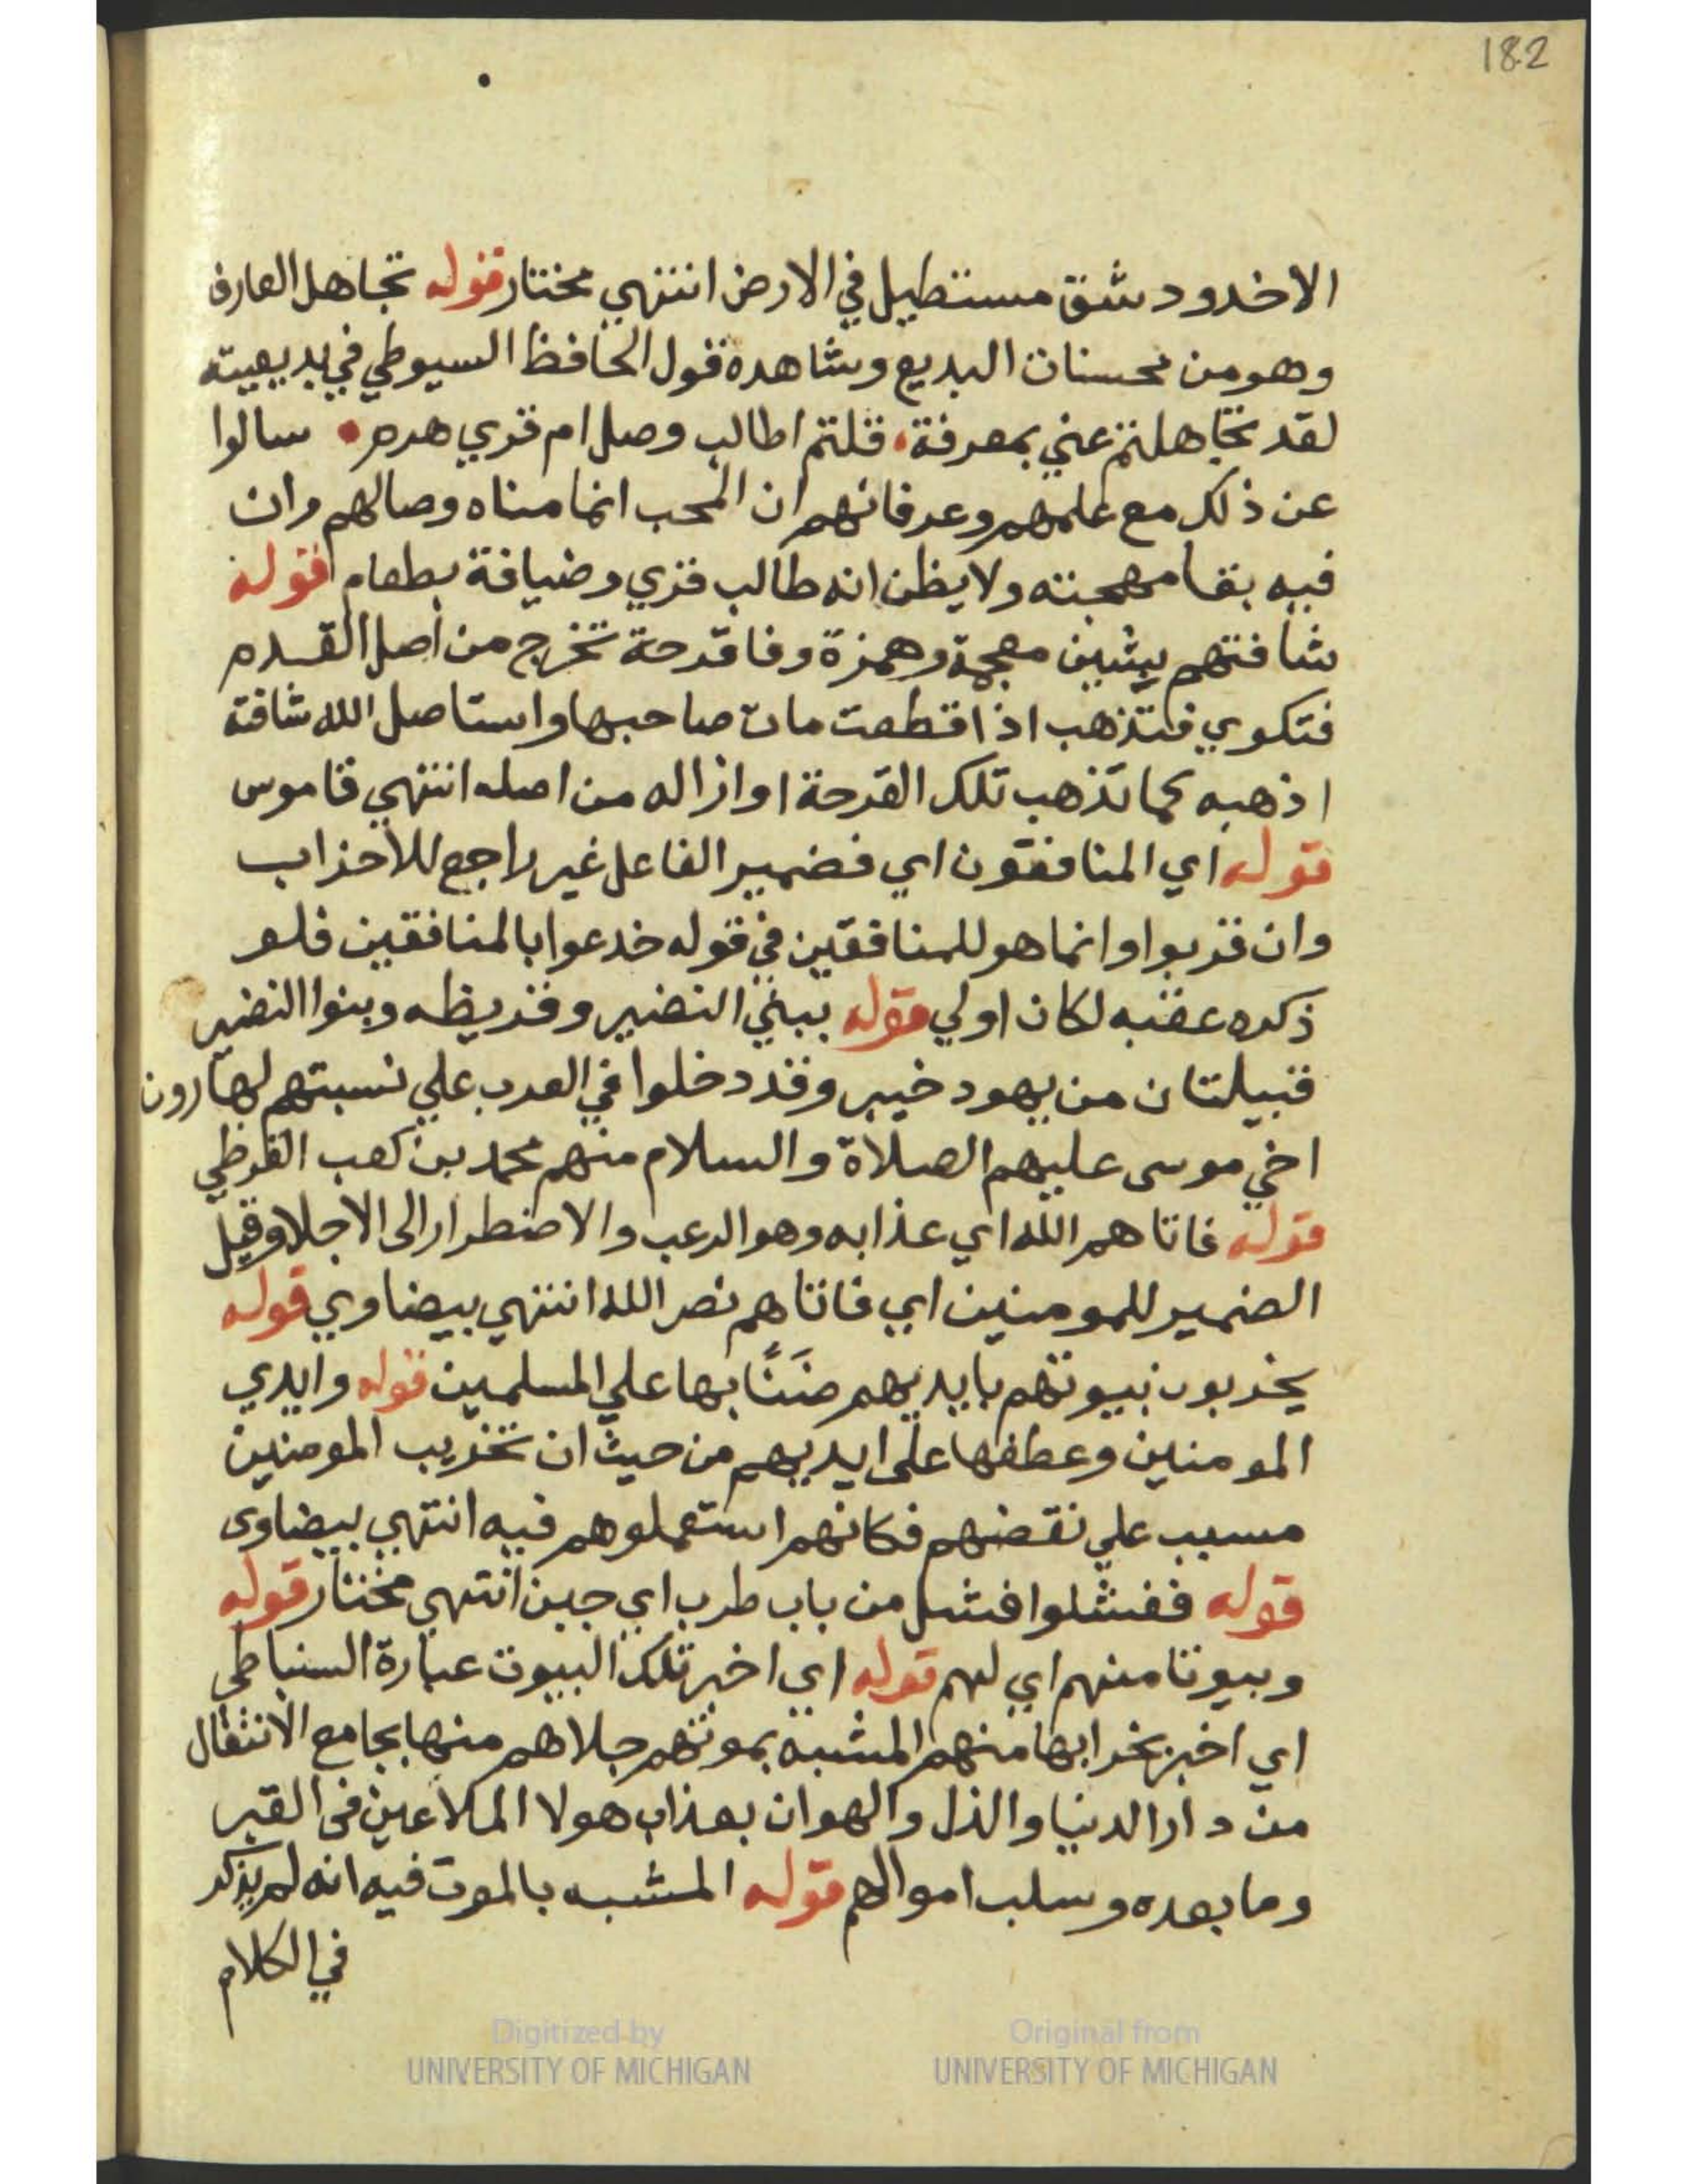 182
الاخدود شق مستطيل في الارض انتهي مختار قوله تجاهل العارف
وهو من محسنات البديع وشاهده قول الحافظ السيوطي في بديعيته
لقد تجاهلتم عني بمعرفة فلتم اطالب وصل ام قري هرم سالوا
عن ذلك مع علمهم وعرفانهم ان المحب انما مناه وصالهم وان
فيه بقا مهجته ولا يظن انه طالب قري وضيافة بطعام قوله
شافتهم بشين معجمة وهمزة وفا قرحة تخرج من اصل القدم
فتكوي فتذهب اذا قطعت مات صاحبها واستاصل الله شافته
اذهبه كما تذهب تلك القرحة او ازاله من اصله انتهي قاموس
قوله اي المنافقون اي فضمير الفاعل غير راجع للاحزاب
وان قربوا وانما هو للمنافقين في قوله خدعوا بالمنافقين فلو
ذكره عقبه لكان اولي قوله ببني النضير وقريظه وبنوا النضير
قبيلتان من يهود خيبر وقد دخلوا في العرب علي نسبتهم لهارون
اخي موسى عليهم الصلاة والسلام منهم محمد بن كعب القرظي
قوله فاتاهم الله اي عذابه وهو الرعب والاضطرار الى الاجلا وقيل
الضمير للمومنين اي فاتاهم نصر الله انتهي بيضاوي قوله
يخربون بيوتهم بايديهم ضننًا بها علي المسلمين قوله وايدي
المومنين وعطفها على ايديهم من حيث ان تخريب المومنين
مسبب علي نقضهم فكانهم استعملوهم فيه انتهي بيضاوى
قوله ففشلوا فشل من باب طرب اي جبن انتهي مختار قوله
وبيوتا منهم اي لهم قوله اي اخبر تلك البيوت عبارة السنباطي
اي اخبر بخرابها منهم المشبه بموتهم جلاهم منها بجامع الانتقال
من دار الدنيا والذل والهوان بعذاب هولا الملاعين في القبر
وما بعده وسلب اموالهم قوله المشبه بالموت فيه انه لم يذكر
في الكلام
Digitized by
UNIVERSITY OF MICHIGAN
Original from
UNIVERSITY OF MICHIGAN